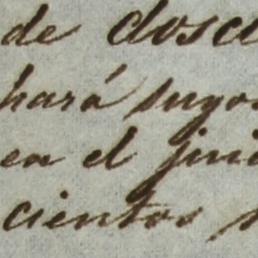 de dosci
hará sugos
en el jui
cientos